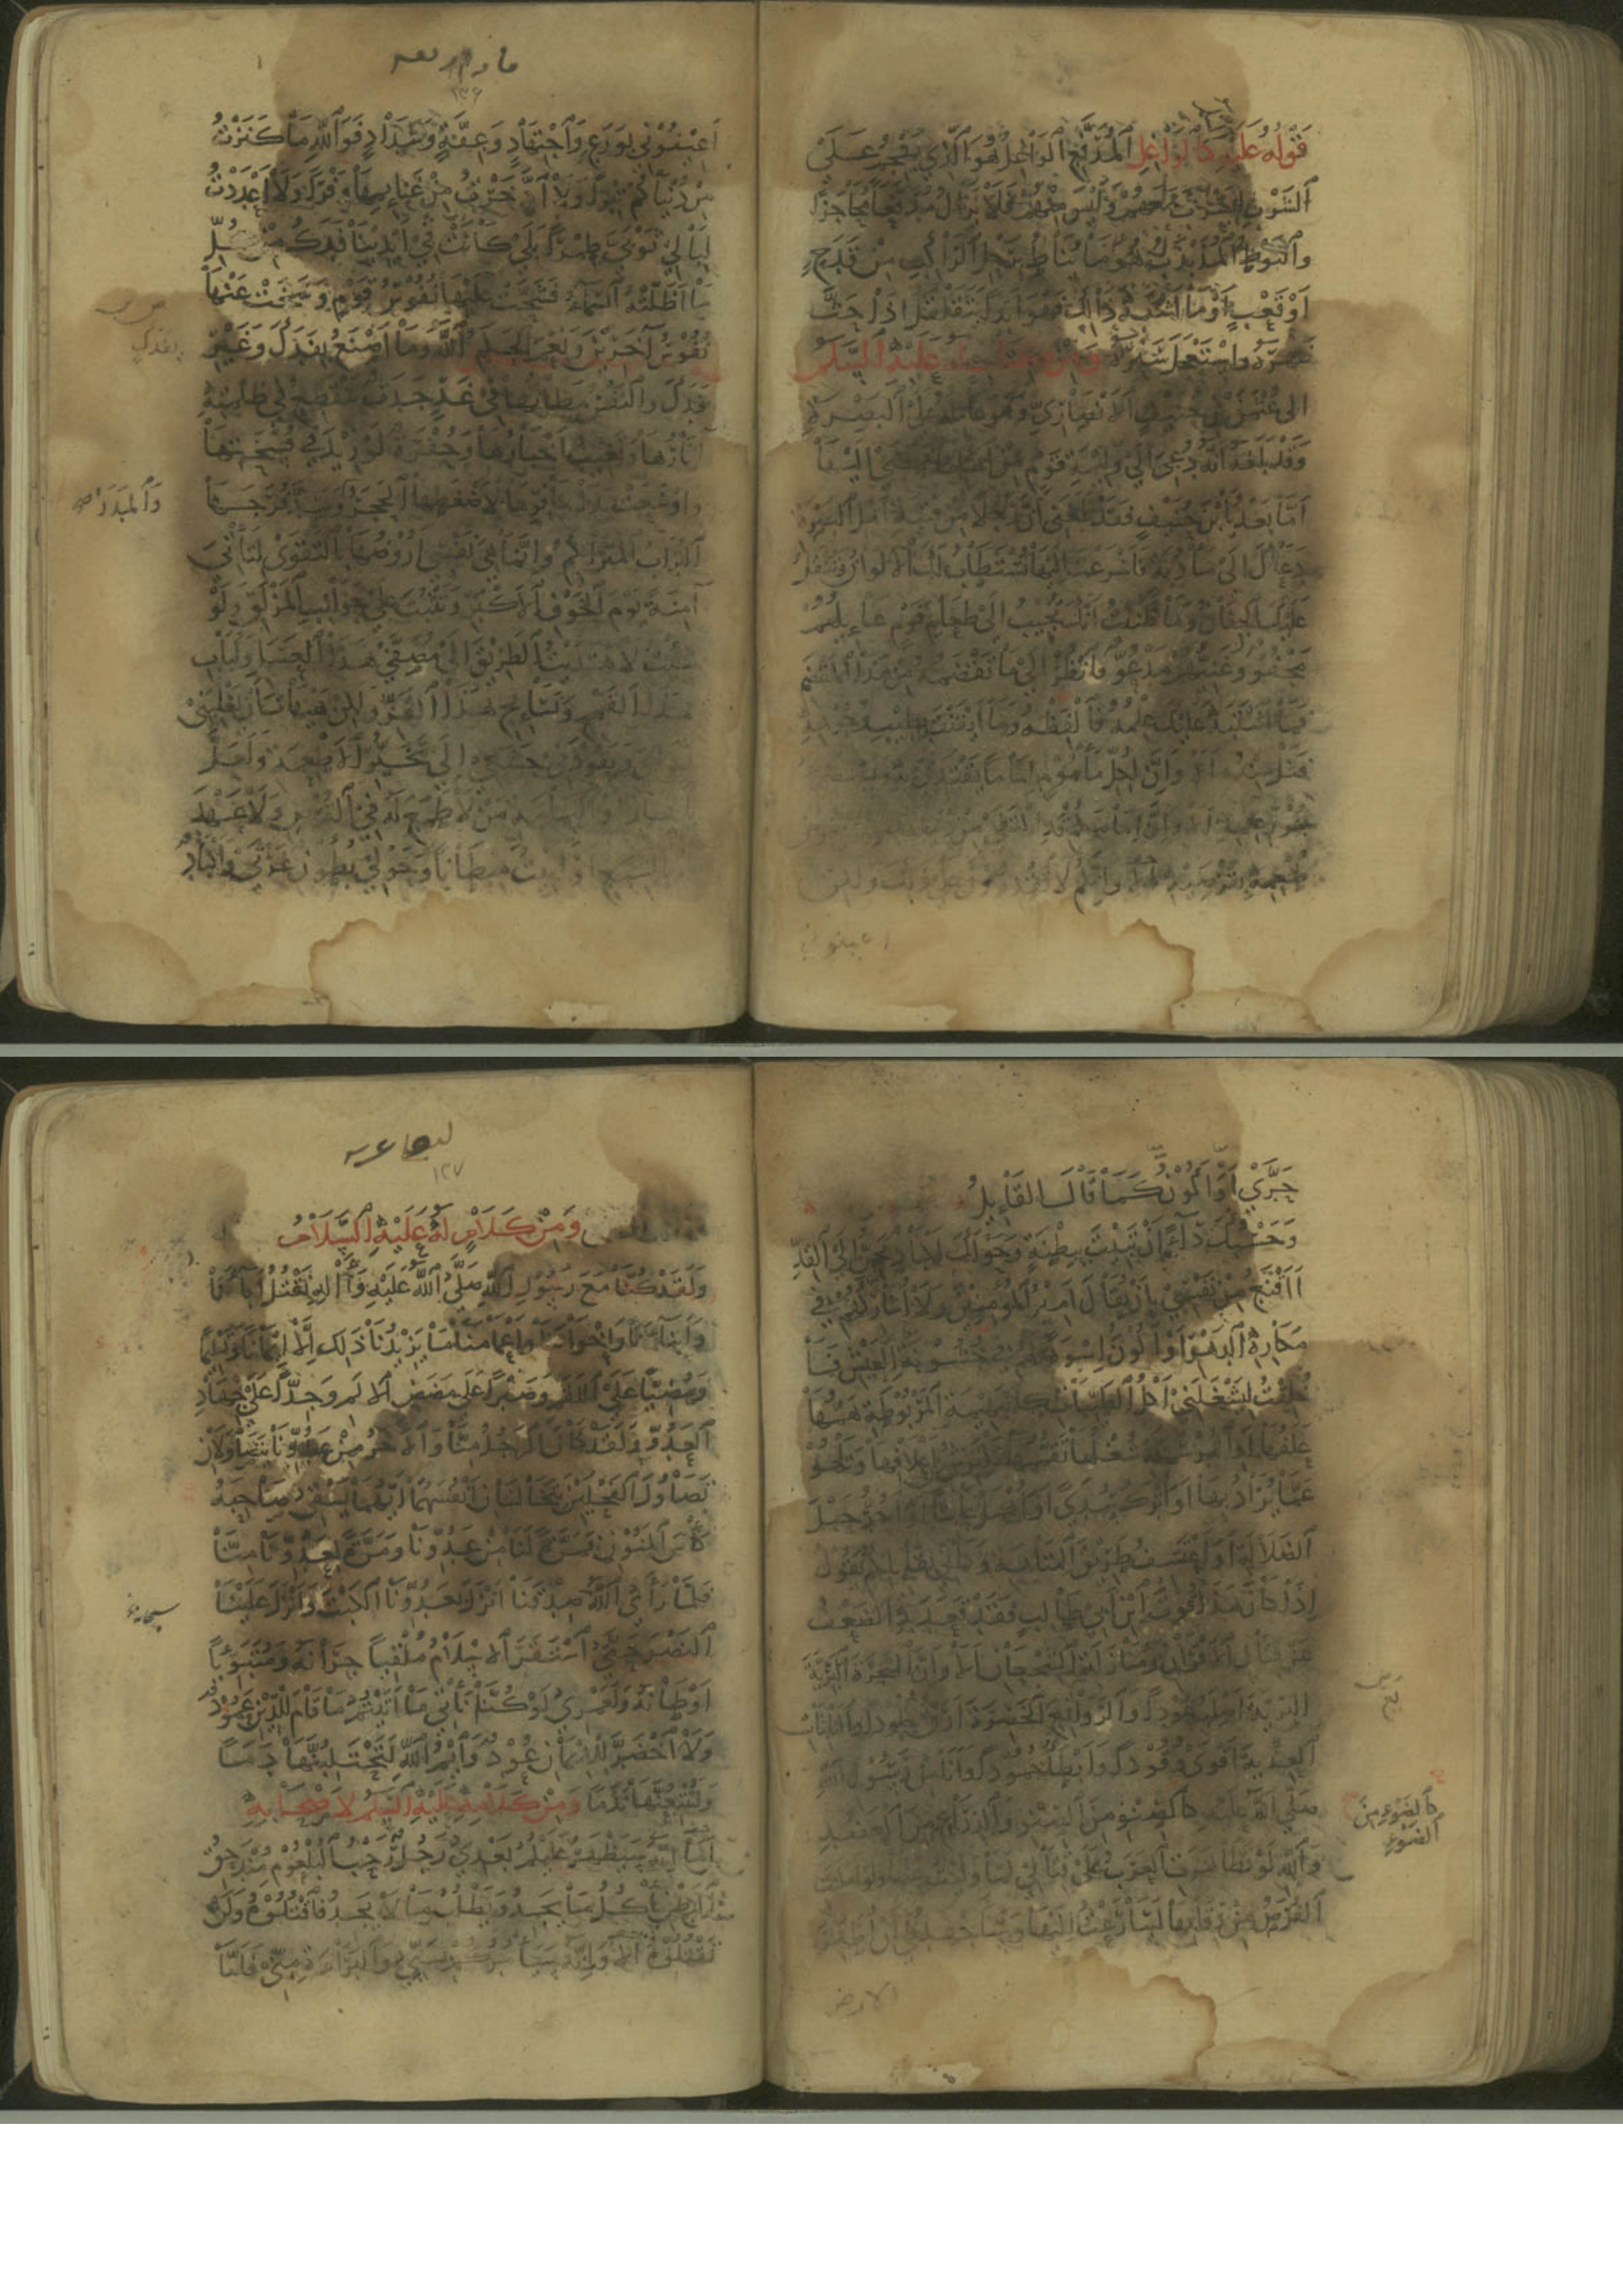 قَوْلُهُ عَلَيْهِ كَالْوَاغِلِ الْمُدَفَّعِ الْوَاغِلُ هُوَ الَّذِي يَهْجُمُ عَلَى
الشَّرْبِ لِيَشْرَبَ مَعَهُمْ وَلَيْسَ مِنْهُمْ فَلَا يَزَالُ مُدَفَّعًا مُحَاجَزًا
وَالنَّوْطِ الْمُذَبْذَبِ هُوَ مَا يُنَاطُ بِرَحْلِ الرَّاكِبِ مِنْ قَدَحٍ
أَوْ قَعْبٍ أَوْ مَا أَشْبَهَ ذَلِكَ فَهُوَ أَبَدًا يَتَقَلْقَلُ إِذَا حَثَّ
ظَهْرَهُ وَاسْتَعْجَلَ سَيْرَهُ وَمِنْ كِتَابٍ لَهُ عَلَيْهِ السَّلَمُ
إِلَى عُثْمَانَ بْنِ حُنَيْفٍ الْأَنْصَارِيِّ وَهُوَ عَامِلُهُ عَلَى الْبَصْرَةِ
وَقَدْ بَلَغَهُ أَنَّهُ دُعِيَ إِلَى وَلِيمَةِ قَوْمٍ مِنْ أَهْلِهَا فَمَضَى إِلَيْهَا
أَمَّا بَعْدُ يَا بْنَ حُنَيْفٍ فَقَدْ بَلَغَنِي أَنَّ رَجُلًا مِنْ فِتْيَةِ أَهْلِ الْبَصْرَةِ
دَعَاكَ إِلَى مَأْدُبَةٍ فَأَسْرَعْتَ إِلَيْهَا تُسْتَطَابُ لَكَ الْأَلْوَانُ وَتُنْقَلُ
عَلَيْكَ الْجِفَانُ وَمَا ظَنَنْتُ أَنَّكَ تُجِيبُ إِلَى طَعَامِ قَوْمٍ عَائِلُهُمْ
مَجْفُوٌّ وَغَنِيُّهُمْ مَدْعُوٌّ فَانْظُرْ إِلَى مَا تَقْضَمُهُ مِنْ هَذَا الْمَقْضَمِ
فَمَا اشْتَبَهَ عَلَيْكَ عِلْمُهُ فَالْفِظْهُ وَمَا أَيْقَنْتَ بِطِيبِ وُجُوهِهِ
فَنَلْ مِنْهُ أَلَا وَإِنَّ لِكُلِّ مَأْمُومٍ إِمَامًا يَقْتَدِي بِهِ وَيَسْتَضِيءُ
بِنُورِ عِلْمِهِ أَلَا وَإِنَّ إِمَامَكُمْ قَدِ اكْتَفَى مِنْ
طُعْمِهِ بِقُرْصَيْهِ أَلَا وَإِنَّكُمْ لَا تَقْدِرُونَ عَلَى ذَلِكَ وَلَكِنْ
اعينوني
١٣٦
أَعِينُونِي بِوَرَعٍ وَاجْتِهَادٍ وَعِفَّةٍ وَسَدَادٍ فَوَاللَّهِ مَا كَنَزْتُ
مِنْ دُنْيَاكُمْ تِبْرًا وَلَا ادَّخَرْتُ مِنْ غَنَائِمِهَا وَفْرًا وَلَا أَعْدَدْتُ
لِبَالِي ثَوْبَيَّ طِمْرًا بَلَى كَانَتْ فِي أَيْدِينَا فَدَكُ مِنْ كُلِّ
مَا أَظَلَّتْهُ السَّمَاءُ فَشَحَّتْ عَلَيْهَا نُفُوسُ قَوْمٍ وَسَخَتْ عَنْهَا
نُفُوسُ آخَرِينَ وَنِعْمَ الْحَكَمُ اللَّهُ وَمَا أَصْنَعُ بِفَدَكَ وَغَيْرِ
فَدَكَ وَالنَّفْسُ مَظَانُّهَا فِي غَدٍ جَدَثٌ تَنْقَطِعُ فِي ظُلْمَتِهِ
آثَارُهَا وَتَغِيبُ أَخْبَارُهَا وَحُفْرَةٌ لَوْ زِيدَ فِي فُسْحَتِهَا
وَأَوْسَعَتْ يَدَا حَافِرِهَا لَأَضْغَطَهَا الْحَجَرُ وَسَدَّ فُرَجَهَا
وَالْمَدَرُ صح
التُّرَابُ الْمُتَرَاكِمُ وَإِنَّمَا هِيَ نَفْسِي أَرُوضُهَا بِالتَّقْوَى لِتَأْتِيَ
آمِنَةً يَوْمَ الْخَوْفِ الْأَكْبَرِ وَتَثْبُتَ عَلَى جَوَانِبِ الْمَزْلَقِ وَلَوْ
شِئْتُ لَاهْتَدَيْتُ الطَّرِيقَ إِلَى مُصَفَّى هَذَا الْعَسَلِ وَلُبَابِ
هَذَا الْقَمْحِ وَنَسَائِجِ هَذَا الْقَزِّ وَلَكِنْ هَيْهَاتَ أَنْ يَغْلِبَنِي
وَيَقُودَنِي جَشَعِي إِلَى تَخَيُّرِ الْأَطْعِمَةِ وَلَعَلَّ
وَالْيَمَامَةِ مَنْ لَا طَمَعَ لَهُ فِي الْقُرْصِ وَلَا عَهْدَ
بِالشِّبَعِ أَوْ أَبِيتَ مِبْطَانًا وَحَوْلِي بُطُونٌ غَرْثَى وَأَكْبَادٌ
حَرَّى أَوْ أَكُونُ كَمَا قَالَ الْقَائِلُ
وَحَسْبُكَ دَاءً أَنْ تَبِيتَ بِبِطْنَةٍ وَحَوْلَكَ أَكْبَادٌ تَحِنُّ إِلَى الْقِدِّ
أَأَقْنَعُ مِنْ نَفْسِي بِأَنْ يُقَالَ أَمِيرُ الْمُؤْمِنِينَ وَلَا أُشَارِكُهُمْ فِي
مَكَارِهِ الدَّهْرِ أَوْ أَكُونَ أُسْوَةً لَهُمْ فِي خُشُوبَةِ الْعَيْشِ فَمَا
خُلِقْتُ لِيَشْغَلَنِي أَكْلُ الطَّيِّبَاتِ كَالْبَهِيمَةِ الْمَرْبُوطَةِ هَمُّهَا
عَلَفُهَا أَوِ الْمُرْسَلَةِ شُغْلُهَا تَقَمُّمُهَا تَكْتَرِشُ مِنْ أَعْلَافِهَا وَتَلْهُو
عَمَّا يُرَادُ بِهَا أَوْ أُتْرَكَ سُدًى أَوْ أُهْمَلَ عَابِثًا أَوْ أَجُرَّ حَبْلَ
الضَّلَالَةِ أَوْ أَعْتَسِفَ طَرِيقَ الْمَتَاهَةِ وَكَأَنِّي بِقَائِلِكُمْ يَقُولُ
إِذَا كَانَ هَذَا قُوتَ ابْنِ أَبِي طَالِبٍ فَقَدْ قَعَدَ بِهِ الضَّعْفُ
عَنْ قِتَالِ الْأَقْرَانِ وَمُنَازَلَةِ الشُّجْعَانِ أَلَا وَإِنَّ الشَّجَرَةَ الْبَرِّيَّةَ
أَصْلَبُ عُودًا وَالرَّوَائِعَ الْخَضِرَةَ أَرَقُّ جُلُودًا وَالنَّابِتَاتِ
الْعِذْيَةَ أَقْوَى وُقُودًا وَأَبْطَأُ خُمُودًا وَأَنَا مِنْ رَسُولِ اللَّهِ
صَلَّى اللَّهُ عَلَيْهِ كَالصِّنْوِ مِنَ الصِّنْوِ وَالذِّرَاعِ مِنَ الْعَضُدِ
كَالضَّوْءِ مِنَ
الضَّوْءِ
وَاللَّهِ لَوْ تَظَاهَرَتِ الْعَرَبُ عَلَى قِتَالِي لَمَا وَلَّيْتُ عَنْهَا وَلَوْ أَمْكَنَتِ
الْفُرَصُ مِنْ رِقَابِهَا لَسَارَعْتُ إِلَيْهَا وَسَأَجْهَدُ فِي أَنْ أُطَهِّرَ
الارض
١٣٧
وَمِنْ كَلَامٍ لَهُ عَلَيْهِ السَّلَامُ
وَلَقَدْ كُنَّا مَعَ رَسُولِ اللَّهِ صَلَّى اللَّهُ عَلَيْهِ وَآلِهِ نَقْتُلُ آبَاءَنَا
وَأَبْنَاءَنَا وَإِخْوَانَنَا وَأَعْمَامَنَا مَا يَزِيدُنَا ذَلِكَ إِلَّا إِيمَانًا وَتَسْلِيمًا
وَمُضِيًّا عَلَى اللَّقَمِ وَصَبْرًا عَلَى مَضَضِ الْأَلَمِ وَجِدًّا عَلَى جِهَادِ
الْعَدُوِّ وَلَقَدْ كَانَ الرَّجُلُ مِنَّا وَالْآخَرُ مِنْ عَدُوِّنَا يَتَصَاوَلَانِ
تَصَاوُلَ الْفَحْلَيْنِ يَتَخَالَسَانِ أَنْفُسَهُمَا أَيُّهُمَا يَسْقِي صَاحِبَهُ
كَأْسَ الْمَنُونِ فَمَرَّةً لَنَا مِنْ عَدُوِّنَا وَمَرَّةً لِعَدُوِّنَا مِنَّا
فَلَمَّا رَأَى اللَّهُ صِدْقَنَا أَنْزَلَ بِعَدُوِّنَا الْكَبْتَ وَأَنْزَلَ عَلَيْنَا
النَّصْرَ حَتَّى اسْتَقَرَّ الْإِسْلَامُ مُلْقِيًا جِرَانَهُ وَمُتَبَوِّئًا
أَوْطَانَهُ وَلَعَمْرِي لَوْ كُنَّا نَأْتِي مَا أَتَيْتُمْ مَا قَامَ لِلدِّينِ عَمُودٌ
وَلَا اخْضَرَّ لِلْإِيمَانِ عُودٌ وَايْمُ اللَّهِ لَتَحْتَلِبُنَّهَا دَمًا
وَلَتُتْبِعُنَّهَا نَدَمًا وَمِنْ كَلَامِهِ عَلَيْهِ السَّلَمُ لِأَصْحَابِهِ
أَمَا إِنَّهُ سَيَظْهَرُ عَلَيْكُمْ بَعْدِي رَجُلٌ رَحْبُ الْبُلْعُومِ مُنْدَحِقُ
الْبَطْنِ يَأْكُلُ مَا يَجِدُ وَيَطْلُبُ مَا لَا يَجِدُ فَاقْتُلُوهُ وَلَنْ
تَقْتُلُوهُ أَلَا وَإِنَّهُ سَيَأْمُرُكُمْ بِسَبِّي وَالْبَرَاءَةِ مِنِّي فَأَمَّا